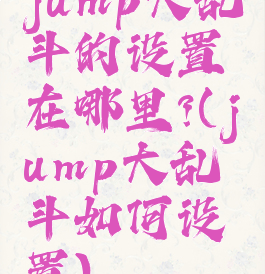 jump大乱
斗的设置
在哪里?(j
ump大乱
斗如何设
置)